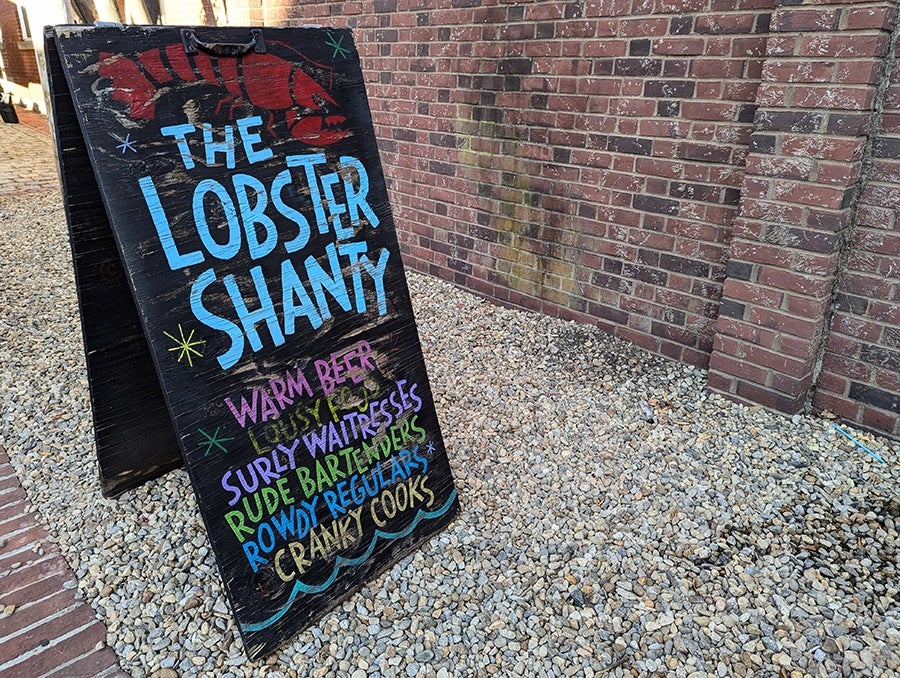 THE
LOBSTER
SHANTY
WARM BEER
LOUSY FOOD
SURLY WAITRESSES
RUDE BARTENDERS
ROWDY REGULARS
CRANKY COOKS